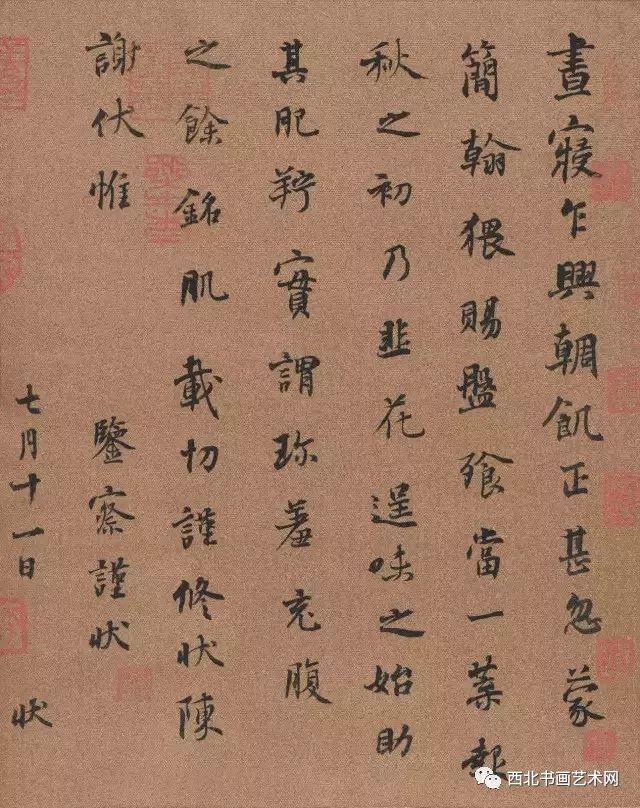 晝寢乍興朝飢正甚忽蒙
簡翰猥賜盤飧當一葉報
秋之初乃韭花逞味之始助
其肥羜實謂珍羞充腹
之餘銘肌載切謹修狀陳
謝伏惟
鑒察謹狀
七月十一日
狀
西北书画艺术网